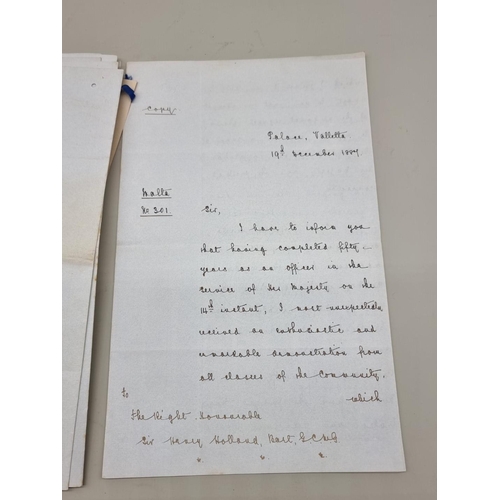 Copy
Palace, Valletta
19th December 1887.
Malta
No 301.
Sir,
I have to inform you
that having completed fifty-
years as an officer in the
Service of Her Majesty on the
14th instant, I most unexpectedly
received an enthusiastic and
remarkable demonstration from
all classes of the Community,
which
To
The Right Honourable
Sir Henry Holland, Bart, G.C.M.G.
" " "